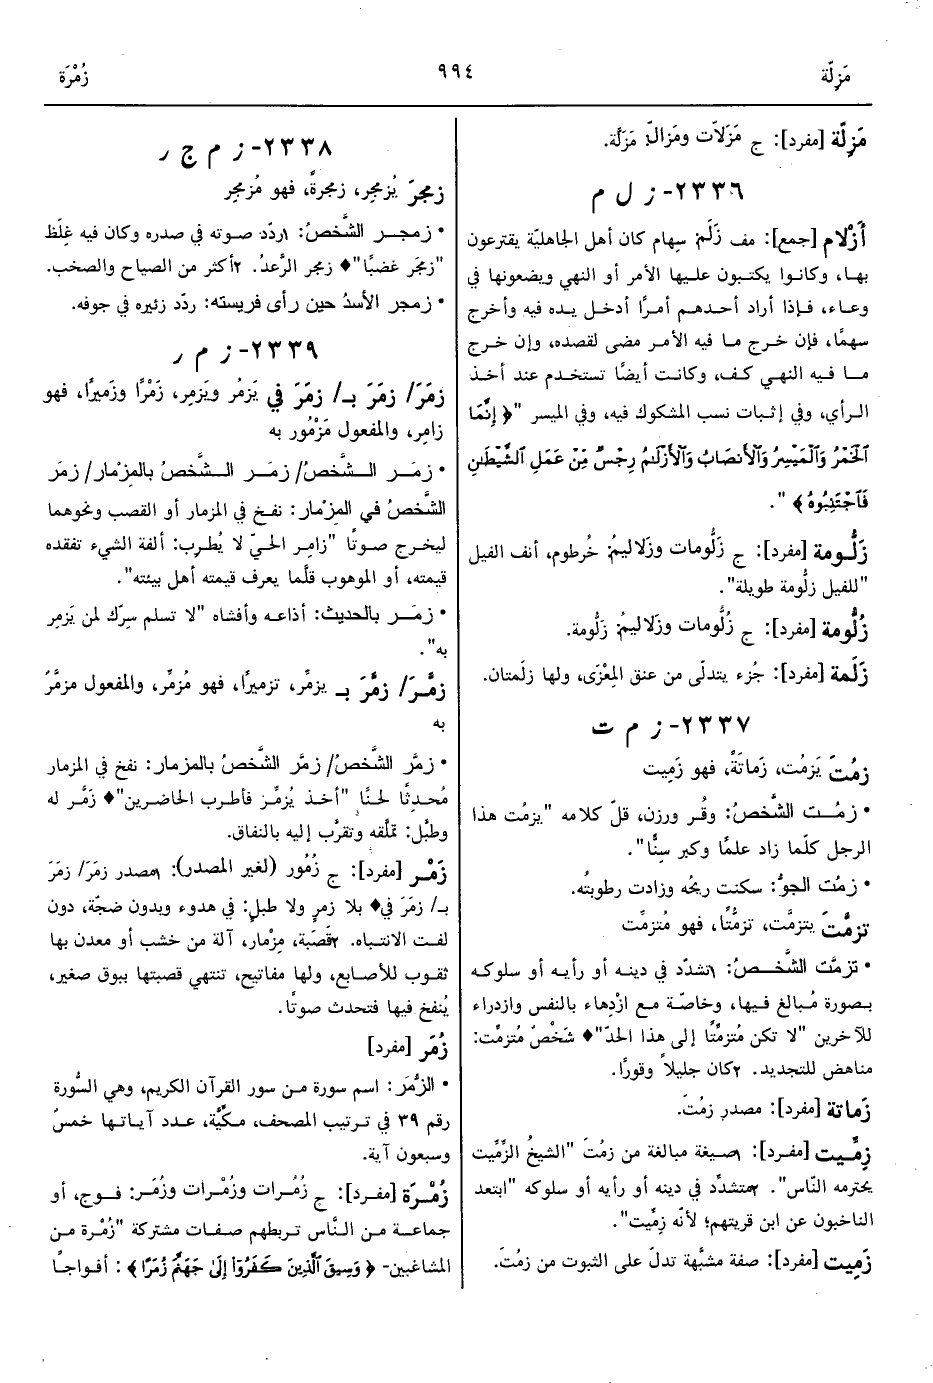 مَزِلّة
٩٩٤
زُمْرَة
مَزِلّة [مفرد]: ج مَزَلاّت ومَزالّ: مَزَلَّة.
٢٣٣٦- ز ل م
أَزْلام [جمع]: مف زَلَم: سِهام كان أهل الجاهليّة يقترعون
بها، وكانوا يكتبون عليها الأمر أو النهي ويضعونها في
وعاء، فإذا أراد أحدهم أمرًا أدخل يده فيه وأخرج
سهمًا، فإن خرج ما فيه الأمر مضى لقصده، وإن خرج
ما فيه النهي كف، وكانت أيضًا تستخدم عند أخذ
الرأي، وفي إثبات نسب المشكوك فيه، وفي الميسر "﴿ إِنَّمَا
ٱلْخَمْرُ وَٱلْمَيْسِرُ وَٱلْأَنصَابُ وَٱلْأَزْلَٰمُ رِجْسٌ مِّنْ عَمَلِ ٱلشَّيْطَٰنِ
فَٱجْتَنِبُوهُ ﴾".
زَلُّومة [مفرد]: ج زَلُّومات وزَلاليمُ: خُرطوم، أنف الفيل
"للفيل زلُّومة طويلة".
زُلُّومة [مفرد]: ج زُلُّومات وزَلاليمُ: زَلُّومة.
زَلَمة [مفرد]: جُزء يتدلّى من عنق المِعْزَى، ولها زلَمتان.
٢٣٣٧- ز م ت
زمُتَ يَزمُت، زَماتَةً، فهو زَمِيت
• زمُت الشَّخصُ: وقُر ورزن، قلّ كلامه "يزمُت هذا
الرجل كلّما زاد علمًا وكبر سِنًّا".
• زمُت الجوُّ: سكنت ريحُه وزادت رطوبتُه.
تزمَّتَ يتزمَّت، تزمُّتًا، فهو مُتزمِّت
• تزمَّت الشَّخصُ: ١تشدّد في دينه أو رأيه أو سلوكه
بصورة مُبالغ فيها، وخاصّة مع ازْدِهاء بالنفس وازدراء
للآخرين "لا تكن مُتزمِّتًا إلى هذا الحدّ"♦ شَخْصٌ مُتزمِّت:
مناهض للتجديد. ٢كان جليلاً وقورًا.
زَماتة [مفرد]: مصدر زمُتَ.
زِمِّيت [مفرد]: ١صيغة مبالغة من زمُتَ "الشيخُ الزِّمِّيت
يحترمه النّاس". ٢متشدِّد في دينه أو رأيه أو سلوكه "ابتعد
الناخبون عن ابن قريتهم؛ لأنّه زِمِّيت".
زَمِيت [مفرد]: صفة مشبَّهة تدلّ على الثبوت من زمُتَ.
٢٣٣٨- ز م ج ر
زمجرَ يُزمجِر، زمجرةً، فهو مُزمجِر
• زمجر الشَّخصُ: ١ردّد صوته في صدره وكان فيه غِلَظ
"زمجَر غضبًا"♦ زمجر الرَّعدُ. ٢أكثر من الصياح والصخب.
• زمجر الأسدُ حين رأى فريسته: ردّد زئيره في جوفه.
٢٣٣٩- ز م ر
زمَرَ/ زمَرَ بـ/ زمَرَ في يَزمُر ويَزمِر، زَمْرًا وزَميرًا، فهو
زامِر، والمفعول مَزْمُور به
• زمَر الشَّخصُ/ زمَر الشَّخصُ بالمزمار/ زمَر
الشَّخصُ في المِزْمار: نفخ في المزمار أو القصب ونحوهما
ليخرج صوتًا "زامِر الحيّ لا يُطرِب: ألفة الشيء تفقده
قيمته، أو الموهوب قلّما يعرف قيمته أهل بيئته".
• زمَر بالحديث: أذاعه وأفشاه "لا تسلم سِرَّك لمن يَزمِر
به".
زمَّرَ/ زمَّرَ بـ يزمِّر، تزميرًا، فهو مُزمِّر، والمفعول مزمَّرٌ
به
• زمَّر الشَّخصُ/ زمَّر الشَّخصُ بالمزمار: نفخ في المزمار
مُحدِثًا لحنًا "أخذ يُزمِّر فأطرب الحاضرين"♦ زَمَّر له
وطبَّل: تملّقه وتقرَّب إليه بالنفاق.
زَمْر [مفرد]: ج زُمُور (لغير المصدر): ١مصدر زمَرَ/ زمَرَ
بـ/ زمَرَ في♦ بلا زمرٍ ولا طبلٍ: في هدوء وبدون ضجّة، دون
لفت الانتباه. ٢قَصَبَة، مِزْمار، آلة من خشب أو معدن بها
ثقوب للأصابع، ولها مفاتيح، تنتهي قصبتها ببوق صغير،
يُنفخ فيها فتحدث صوتًا.
زُمَر [مفرد]
• الزُّمَر: اسم سورة من سور القرآن الكريم، وهي السُّورة
رقم ٣٩ في ترتيب المصحف، مكيَّة، عدد آياتها خمسٌ
وسبعون آية.
زُمْرَة [مفرد]: ج زُمُرات وزُمْرات وزُمَر: فوج، أو
جماعة من النَّاس تربطهم صفات مشتركة "زُمْرة من
المشاغبين- ﴿ وَسِيقَ ٱلَّذِينَ كَفَرُوٓا۟ إِلَىٰ جَهَنَّمَ زُمَرًا ﴾: أفواجًا